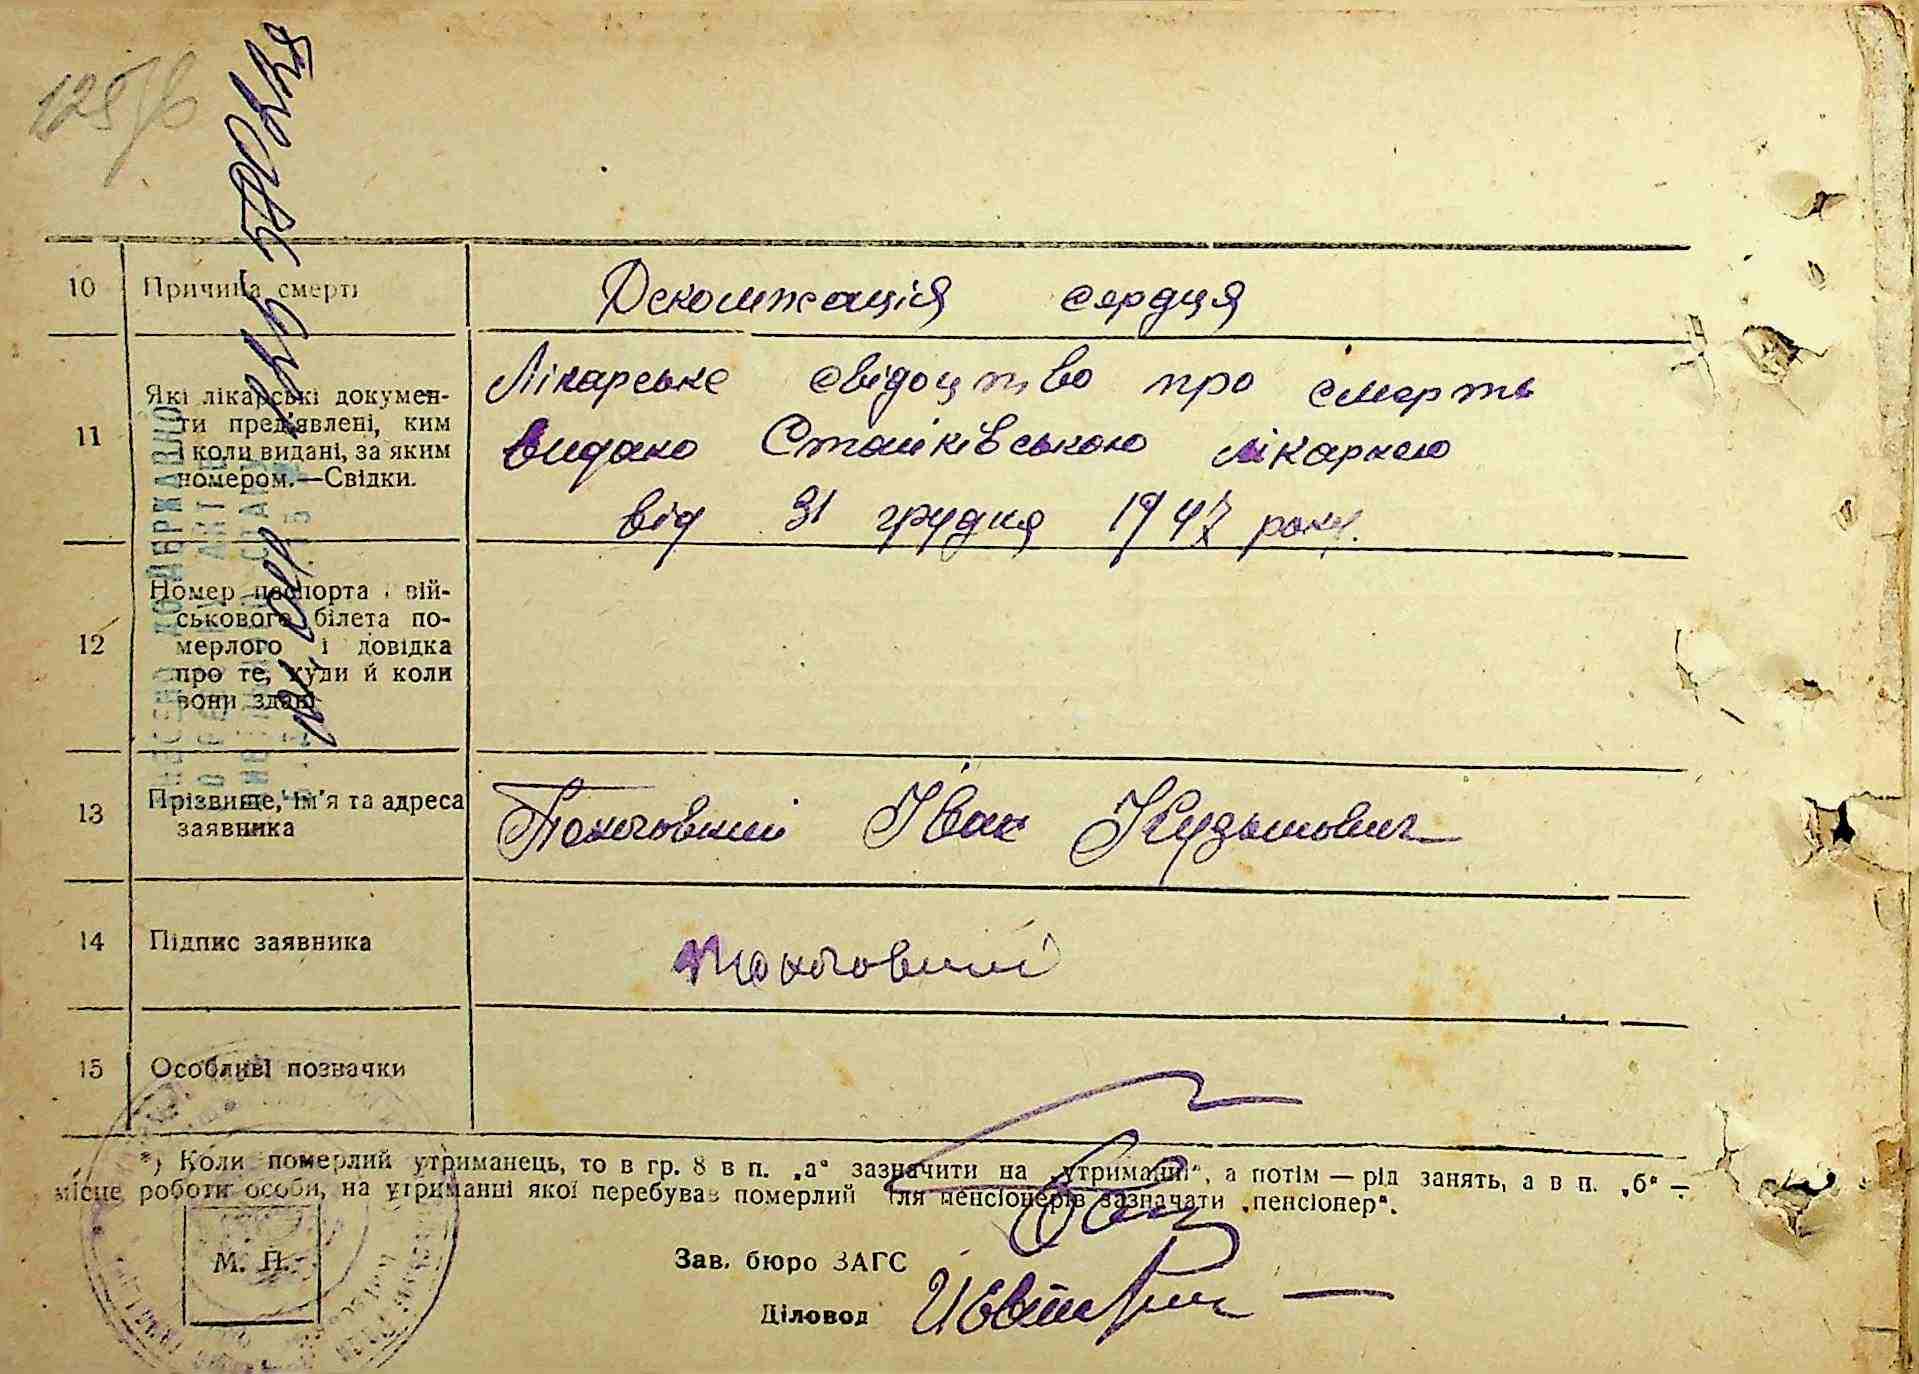 125/б
10 Причина смерті
Декомпсація сердця
11 Які лікарські докумен-
ти пред'явлені, ким
і коли видані, за яким
номером.—Свідки.
Лікарське свідоцтво про смерть
видано Стайківською лікарнею
від 31 грудня 1947 року.
12 Номер паспорта і вій-
ськового білета по-
мерлого і довідка
про те, куди й коли
вони здані
13 Прізвище, ім'я та адреса
заявника
Іван Кузьмович
14 Підпис заявника
15 Особливі позначки
*) Коли померлий утриманець, то в гр. 8 в п. „а“ зазначити на „утриманні“, а потім — рід занять, а в п. „б“ —
місце роботи особи, на утриманні якої перебував померлий для пенсіонерів зазначати „пенсіонер“.
М. П.
Зав. бюро ЗАГС
Діловод